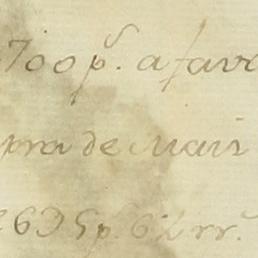 700 p.s a favo
pra de Mais
2695 p.s 6 2 rr.s